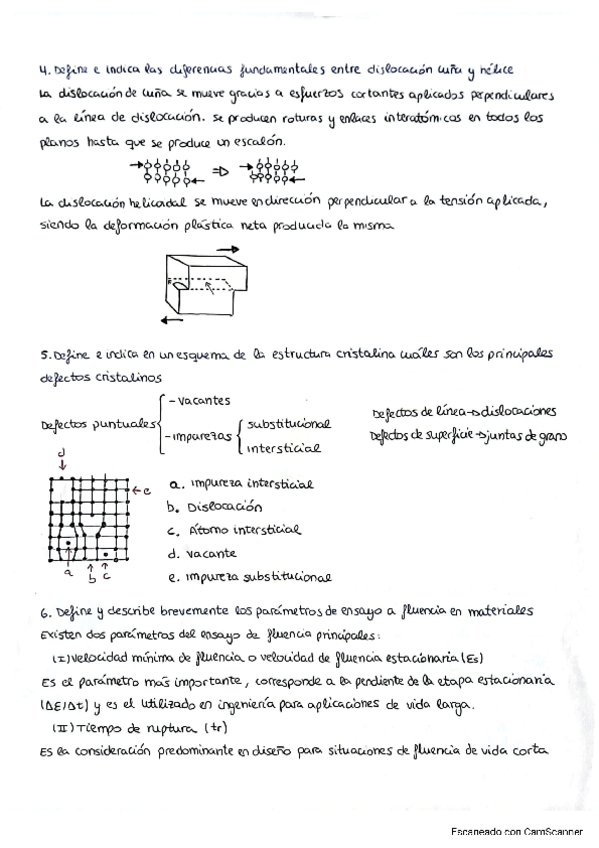 4. Define e indica las diferencias fundamentales entre dislocación cuña y hélice
La dislocación de cuña se mueve gracias a esfuerzos cortantes aplicados perpendiculares
a la línea de dislocación. Se producen roturas y enlaces interatómicos en todos los
planos hasta que se produce un escalón.
La dislocación helicoidal se mueve en dirección perpendicular a la tensión aplicada,
siendo la deformación plástica neta producida la misma
5. Define e indica en un esquema de la estructura cristalina cuáles son los principales
defectos cristalinos
Defectos puntuales
- vacantes
- impurezas
substitucional
intersticial
Defectos de línea → dislocaciones
Defectos de superficie → juntas de grano
d
e
a
b c
a. Impureza intersticial
b. Dislocación
c. Átomo intersticial
d. Vacante
e. Impureza substitucional
6. Define y describe brevemente los parámetros de ensayo a fluencia en materiales
Existen dos parámetros del ensayo de fluencia principales:
(I) Velocidad mínima de fluencia o velocidad de fluencia estacionaria (Es)
Es el parámetro más importante, corresponde a la pendiente de la etapa estacionaria
(ΔE/Δt) y es el utilizado en ingeniería para aplicaciones de vida larga.
(II) Tiempo de ruptura (tr)
Es la consideración predominante en diseño para situaciones de fluencia de vida corta
Escaneado con CamScanner